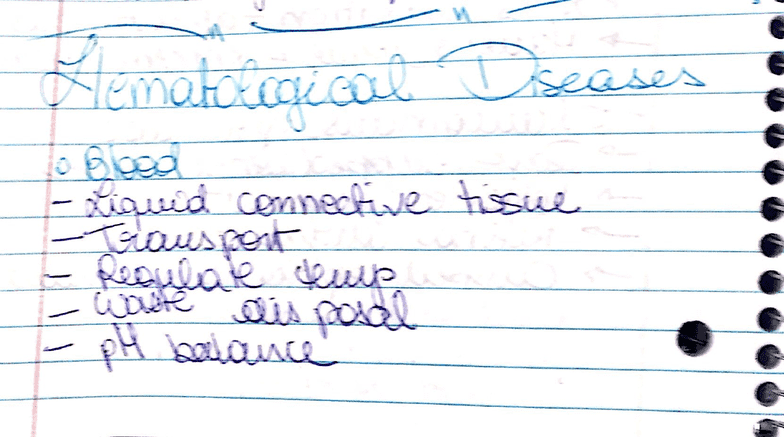 Hematological Diseases
◦ Blood
- Liquid connective tissue
- Transport
- Regulate temp
- Waste disposal
- pH balance